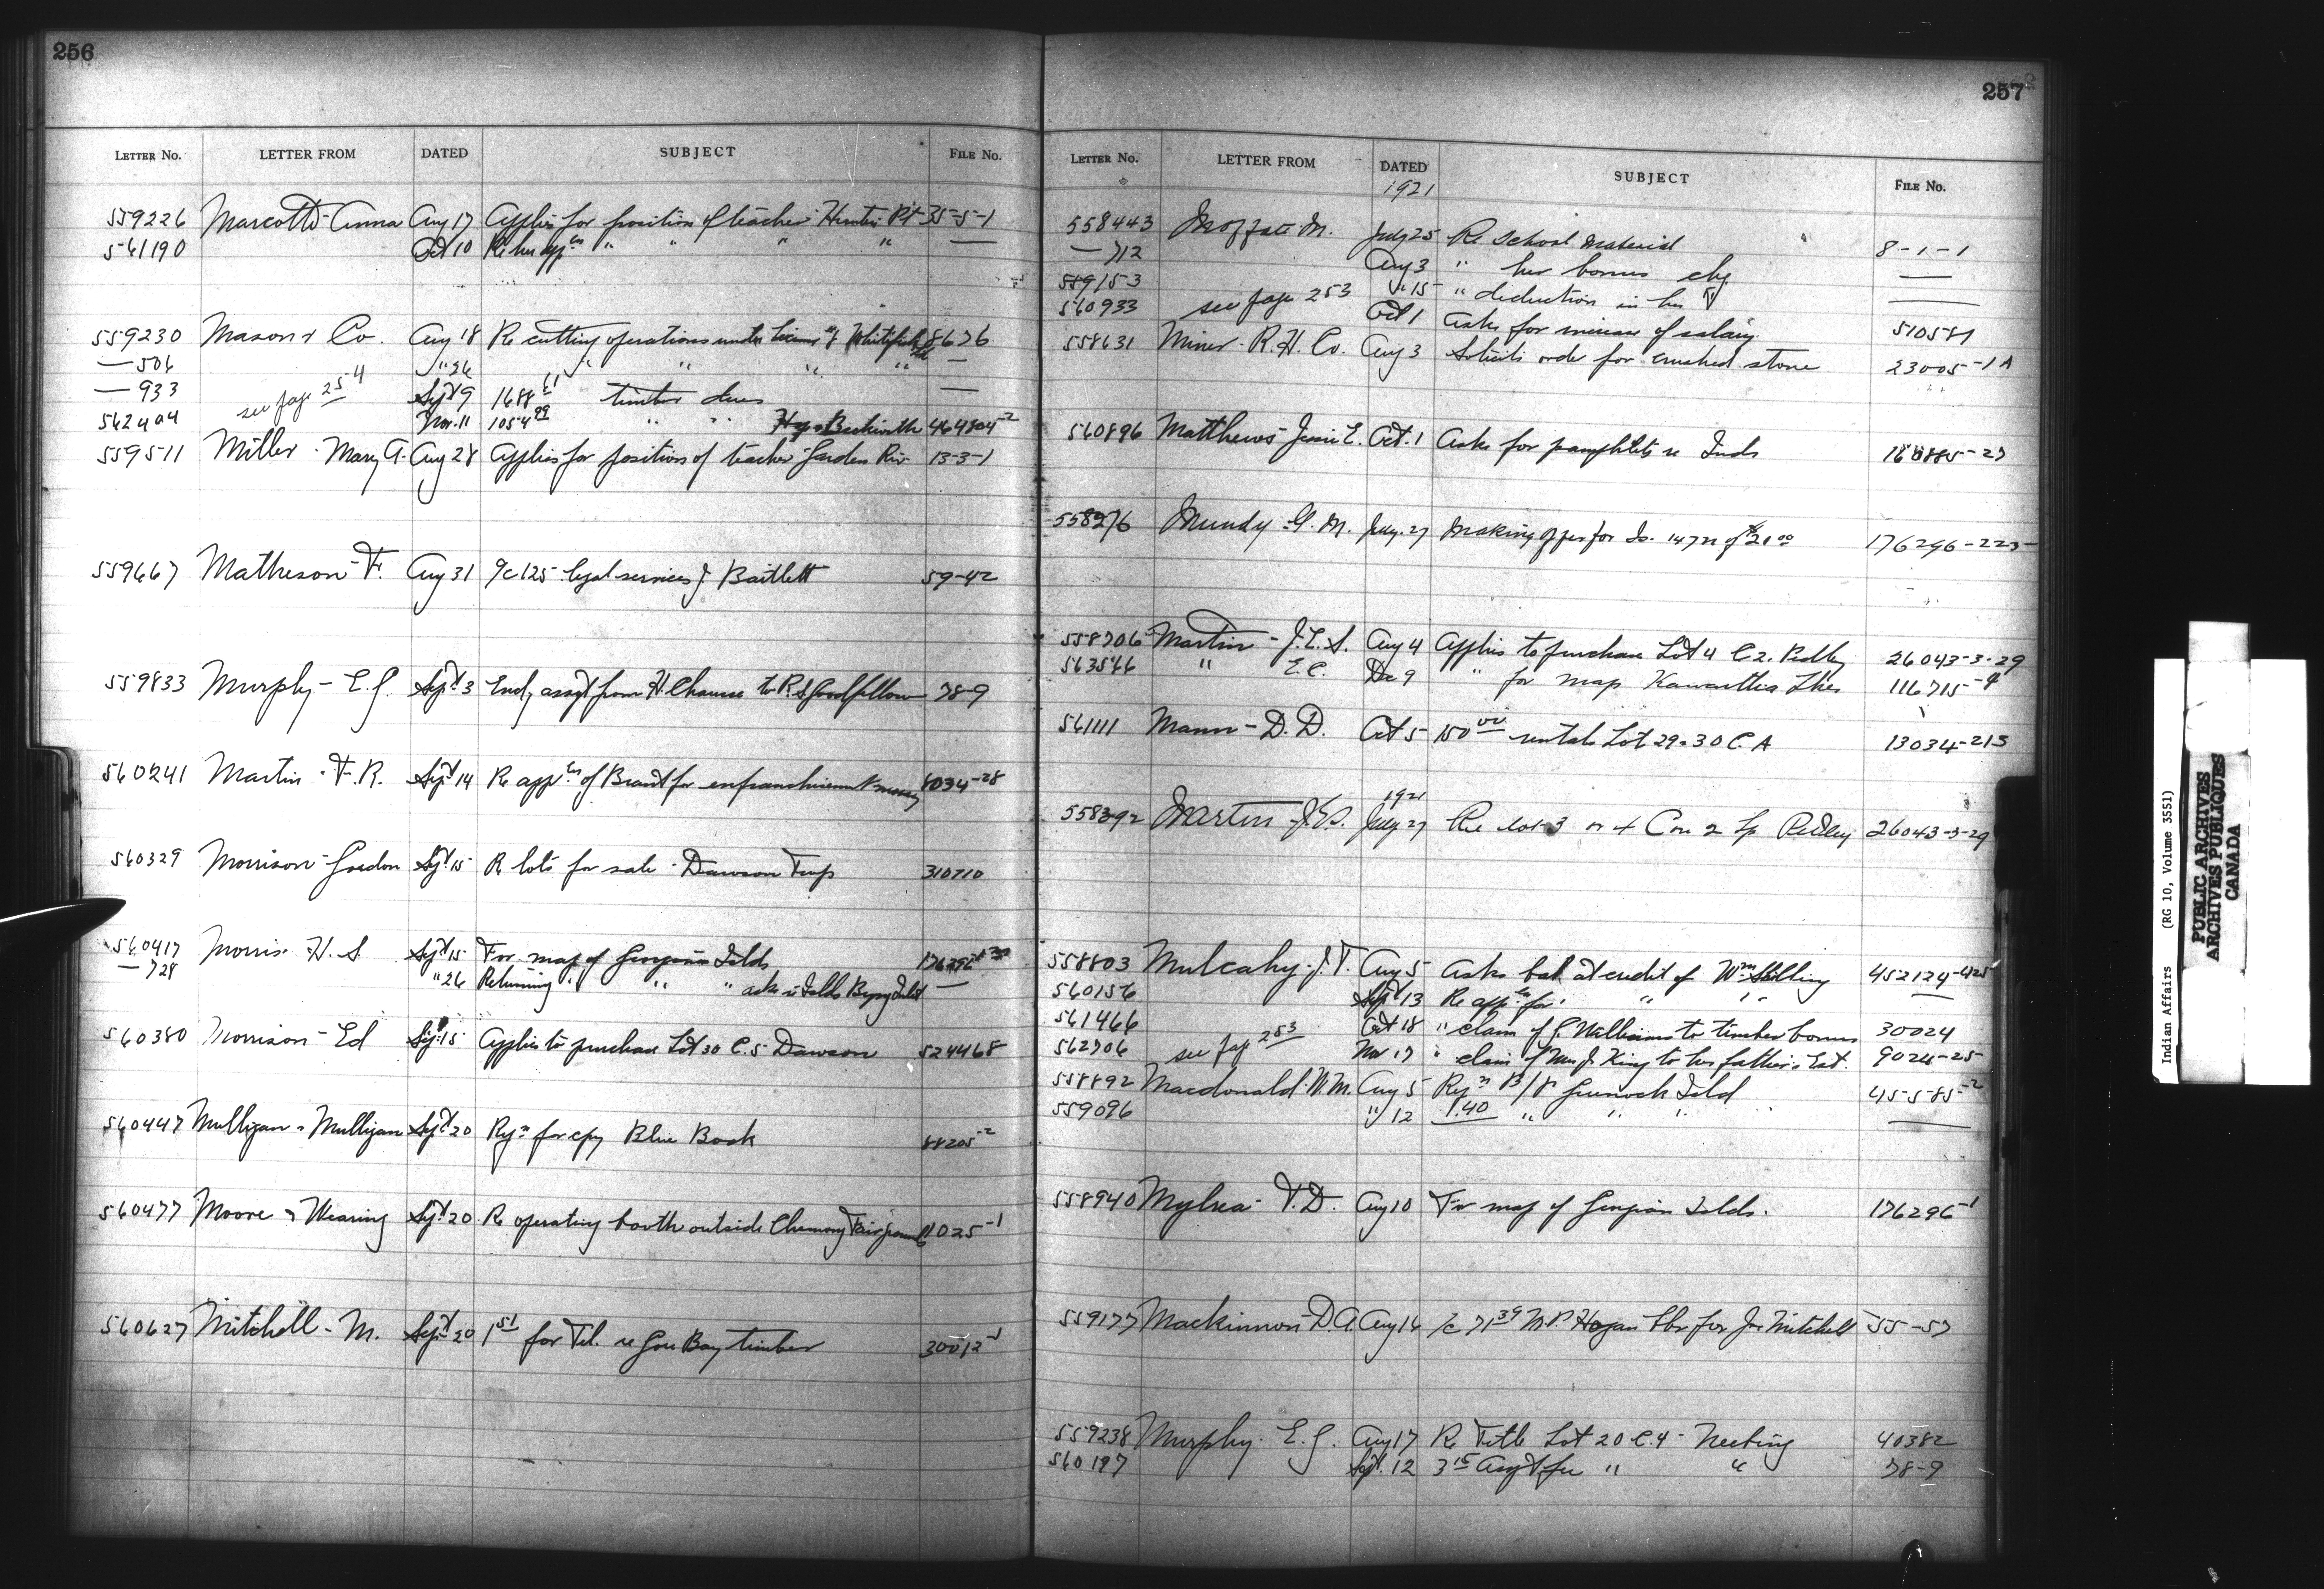 256
LETTER No. LETTER FROM DATED SUBJECT FILE No.
559226 Marcotte Anna Aug 17 Applies for position of teacher Hunters Pt 35-5-1
561190 Oct 10 Re her appn " " " " —
559230 Mason & Co. Aug 18 Re cutting operations under license of Whitefish 8676
— 506 " 26 " " " " —
— 933 Sept 9 1688 61 timber dues —
see page 254
562404 Nov. 11 1054 99 " " Beckwith 464804-2
559511 Miller - Mary A. Aug 28 Applies for position of teacher Garden Riv 13-3-1
559667 Matheson - F. Aug 31 a/c 125 legal services J. Bartlett 59-42
559833 Murphy - E. J. Sept 3 Encl, assgt from H. to R. S. Goodfellow 78-9
560241 Martin - F. R. Sept 14 Re appn of Brant for enfranchisement & money 8034-28
560329 Morrison - Gordon Sept 15 Re lots for sale - Dawson Twp 310710
560417 Morris H. S Sept 15 For map of Georgian Islds
— 728 " 26 Returning " " " asks re Islds Inlet —
560380 Morrison - Ed Sept 15 Applies to purchase Lot 30 C. 5 Dawson 524468
560447 Mulligan & Mulligan Sept 20 Rqn for cpy Blue Book 88205-2
560477 Moore & Wearing Sept 20 Re operating booth outside Chemong Fairgrounds 1025-1
560627 Mitchell - M. Sept 20 1 51 for Tel. re Gore Bay timber 30012-1
257
LETTER No. LETTER FROM DATED SUBJECT FILE No.
1921
558443 Moffatt M. July 25 Re School Material 8-1-1
— 712 Aug 3 " her bonus chq —
559153 " 15 " deduction in her " —
560933 see page 253 Oct 1 Asks for increase of salary 510581
558631 Miner - R. H. Co. Aug 3 Solicits order for crushed stone 23005-1A
560896 Matthews Jessie E. Oct. 1 Asks for pamphlets re Inds 160885-27
558276 Mundy - G. M. July. 27 Making offer for Is. 147 of 21 00 176296-223
558706 Martin - J. E. S. Aug 4 Applies to purchase Lot 4 C 2. Pedley 26043-3-29
563566 " E. C. Dec 9 " for map Kawartha Lkes 116715-4
561111 Mann - D. D. Oct 5 150 00 rentals Lot 29 & 30 C. A 13034-215
1921
558392 Martin J. E. S. July 27 Re lot 3 or 4 Con 2 Tp Pedley 26043-3-29
558803 Mulcahy - J. T. Aug 5 Asks bal. at credit of Wm. Stilling 452124-425
560156 Sept 13 Re appn for " " " —
561466 Oct 18 " claim of J. Williams to timber bonus 30024
562706 see page 253 Nov 17 " claim of Mrs J. King to her father's Est. 9024-25
558892 Macdonald W. M. Aug 5 Rqn B/P Greenock Isld 45585-2
559096 " 12 1.40 " " " —
558940 Mylrea - T. D. Aug 10 For map of Georgian Islds. 176296-1
559177 Mackinnon - D. A. Aug 16 a/c 71 39 M. P. Hogan Lbr for Jn Mitchell 55-57
559238 Murphy E. J. Aug 17 Re Title Lot 20 C. 4 - Neebing 40382
560197 Sept. 12 3 15 Assgt fee " " 78-9
Indian Affairs (RG 10, Volume 3551)
PUBLIC ARCHIVES
ARCHIVES PUBLIQUES
CANADA